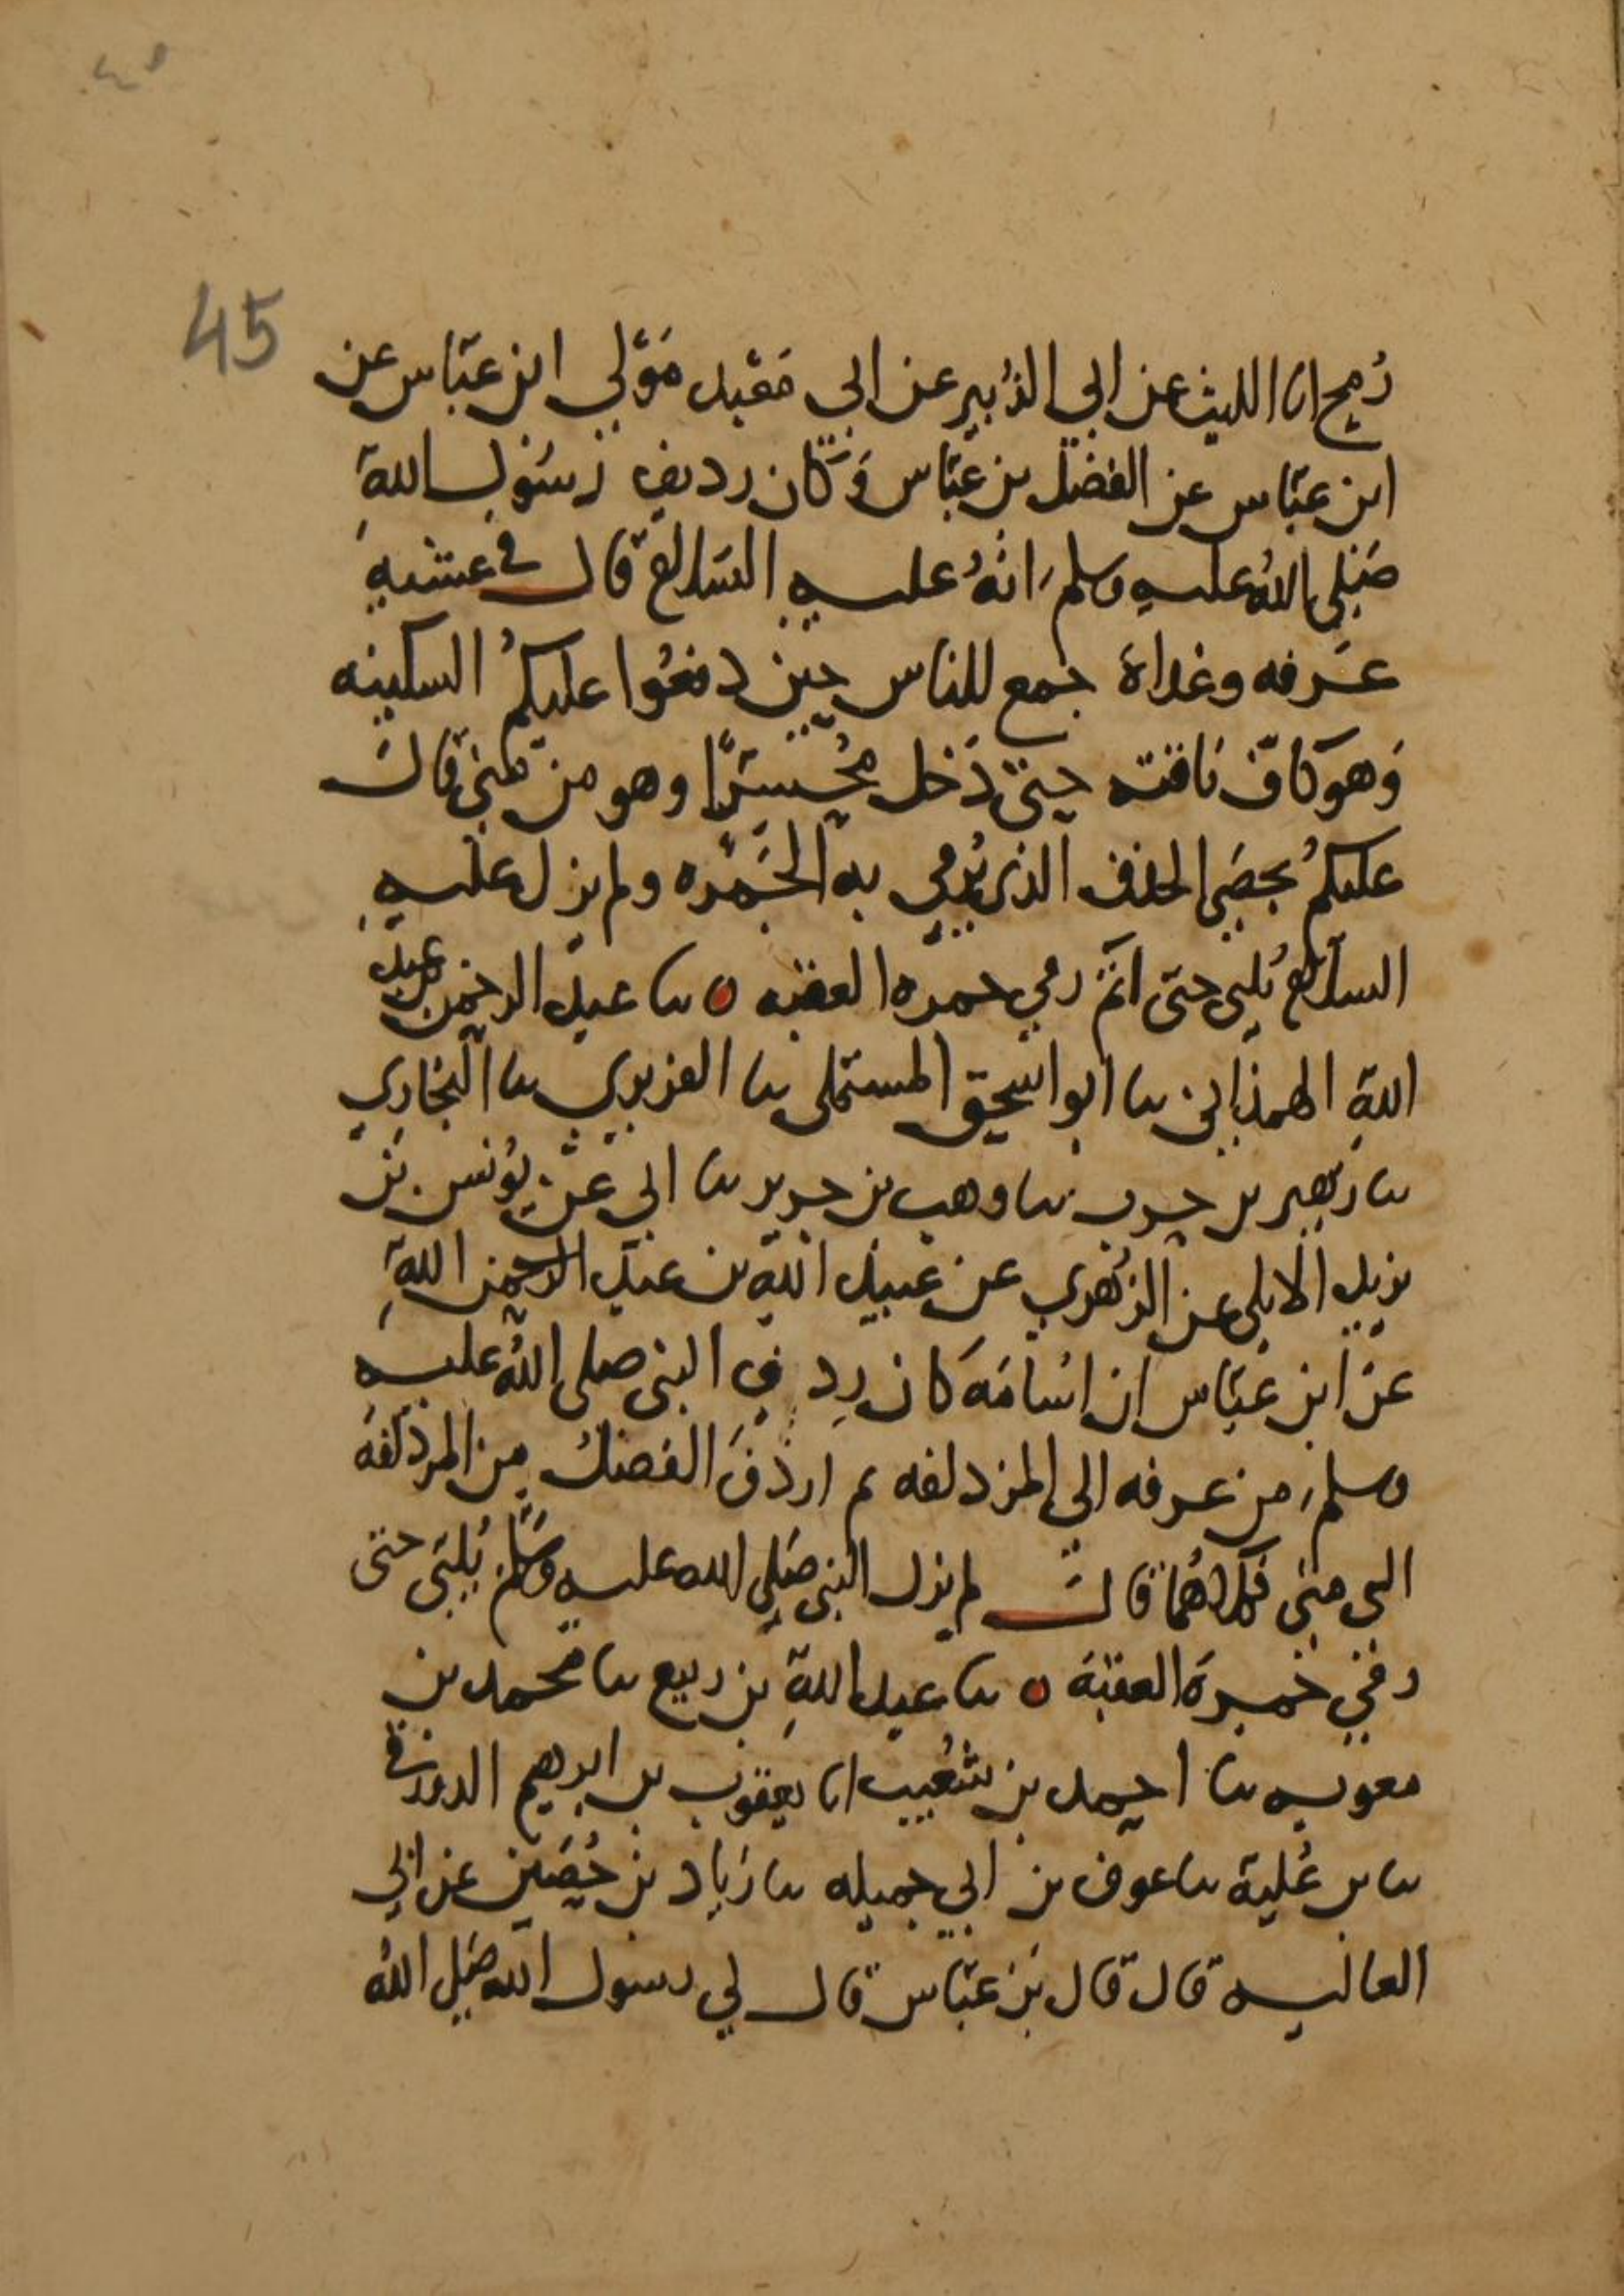 ٤٥
45
رُمح انا الليث عن ابي الزُبير عن ابي مَعْبد مَوْلي ابن عبّاس عن
ابن عبّاس عن الفضل بن عبّاس وَكان رديف رَسُول اللهِ
صَلى اللهُ عليه وسلم انهُ عليه السَلام قال في عشيه
عَرفه وغداة جمع للناس حين دفعُوا عليكمُ السكينه
وَهو كافّ ناقته حتى دَخل مُحسِّرًا وهو من مني قال
عليكمُ بحصَي الخذف الذي يُرمي به الجَمْره ولم يزل عليه
السلام يُلبي حتى اتمّ رمي جمره العقبه ٥ نا عبد الرحمن بن عبد
اللهِ الهمذاني نا ابو اسحق المستملى نا الفربري نا البخاري
نا زهير بن حرب نا وهب بن جرير نا ابي عن يونس بن
يزيد الايلي عن الزُهري عن عبيد الله بن عبد الرحمن اللهِ
عن ابن عبّاس ان اسَامَه كان رِدف النبي صلى اللهُ عليه
وسلم من عرفه الي المزدلفه ثم اردَفَ الفضل من المزدلفه
الى منى فكلاهُما قال لم يزل النبي صَلي الله عليه وسَلم يُلبّي حتى
رمي جمرة العقبَه ٥ نا عبد اللهِ بن ربيع نا محمد بن
معويه نا احمد بن شُعيب انا يعقوب بن ابرهيم الدورقي
نا بن عُلية نا عوف بن ابي جميله نا زياد بن حُصَين عن ابي
العاليه قال قال بن عبّاس قال لي رسول الله صَلي اللهُ